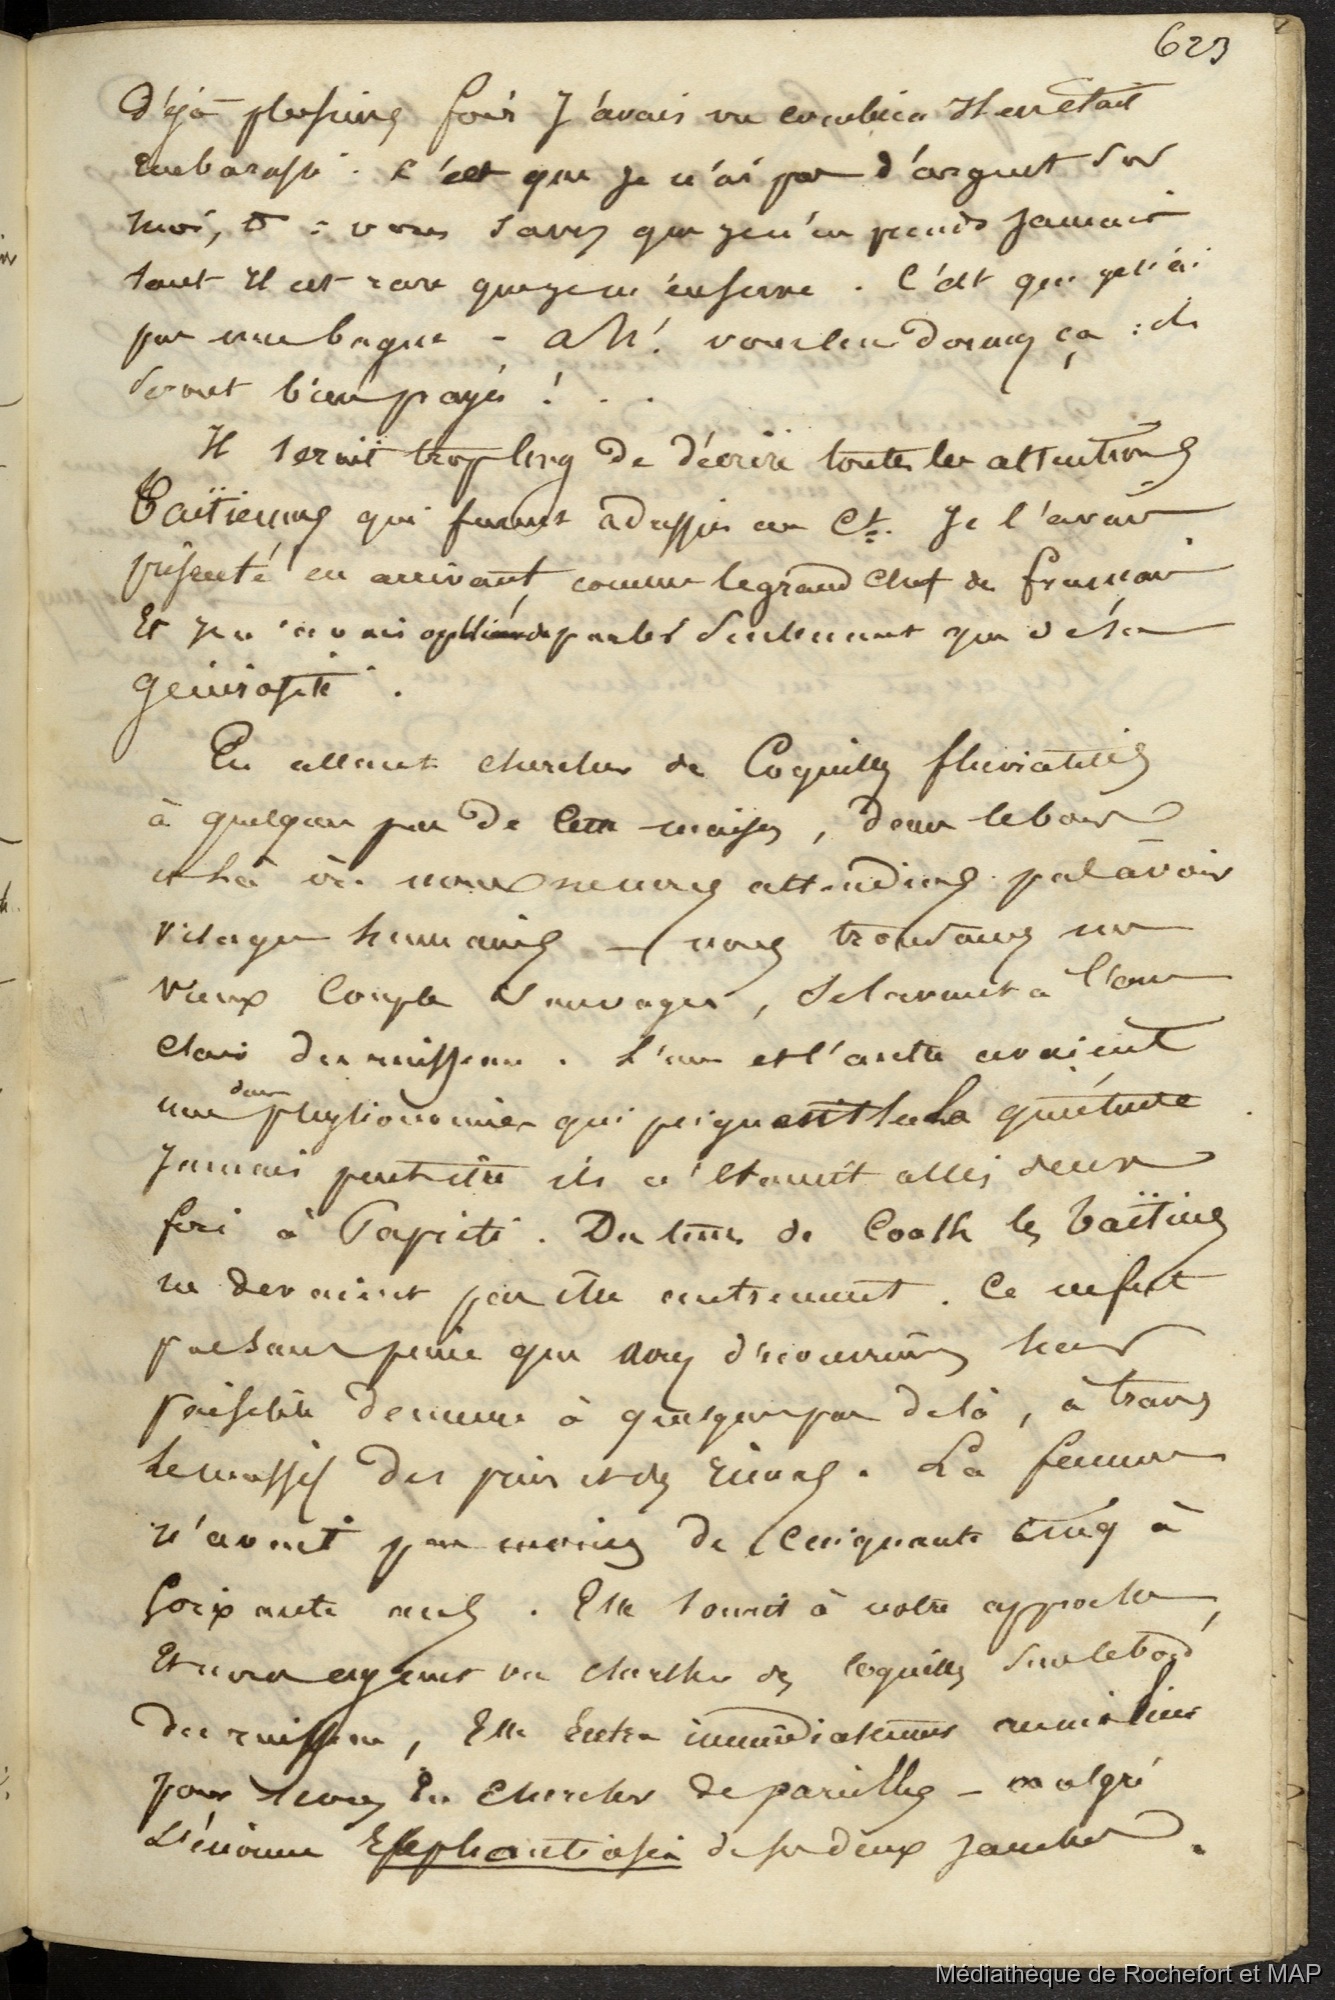 623
Déjà plusieurs fois J'avais vu combien Il en était
Embarassé. C'est que je n'ai pas d'argent sur
moi, vous savez que je n'en prends Jamais
tant Il est rare que je m'en serve. C'est que je n'ai
pas une bague - Ah! vous leur donnez ça : ils
seront bien payés! . .
Il serait trop long de décrire toutes les attentions
Taïtiennes qui furent adressées au Ct. Je l'avais
présenté en arrivant, comme le grand Chef de
Et je n'avais oublié de parler Seulement que de sa
générosité.
En allant chercher des Coquilles fluviatiles
à quelques pas de leur maison, dans le bois
et là où nous ne nous attendions pas à voir
visages humains — nous trouvames un
vieux Couple Sauvages, se lavant à l'eau
claire du ruisseau. L'un et l'autre avaient
une douce physionomie qui peignait la quiétude
Jamais peut-être ils n'étaient allés deux
fois à Papeiti. Du tems de Cook les Taïtiens
ne devaient pas être autrement. Ce ne fut
pas sans peine que nous découvrimes leur
paisible demeure à quelques pas de là, à travers
le massif des et des. La femme
n'avait pas moins de Cinquante cinq à
Soixante ans. Elle sourit à notre approche,
Et nous ayant vu chercher des coquilles sur le bord
du ruisseau, Elle Entra immédiatement au milieu
pour nous En Chercher de pareilles - malgré
L'énorme Elephantiasis de ses deux jambes.
Médiathèque de Rochefort et MAP